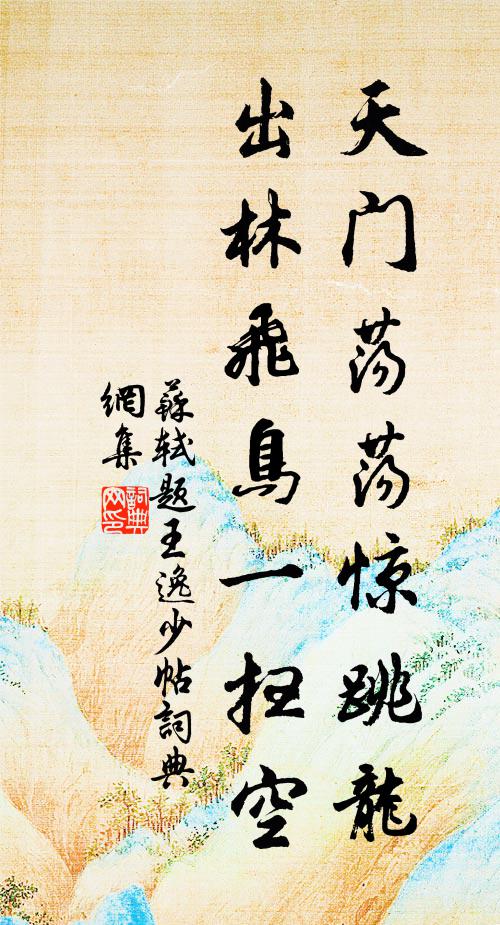 天门荡荡惊跳龙
出林飛鳥一扫空
蘇轼题王逸少帖詞典
網集
詞典
网印